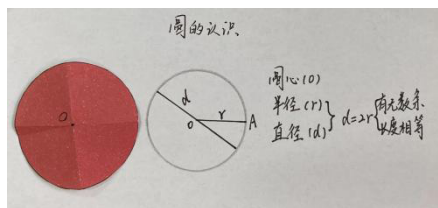 圆的认识
O
d
O
r
A
圆心(O)
半径(r)
直径(d)
d=2r
有无数条
长度相等